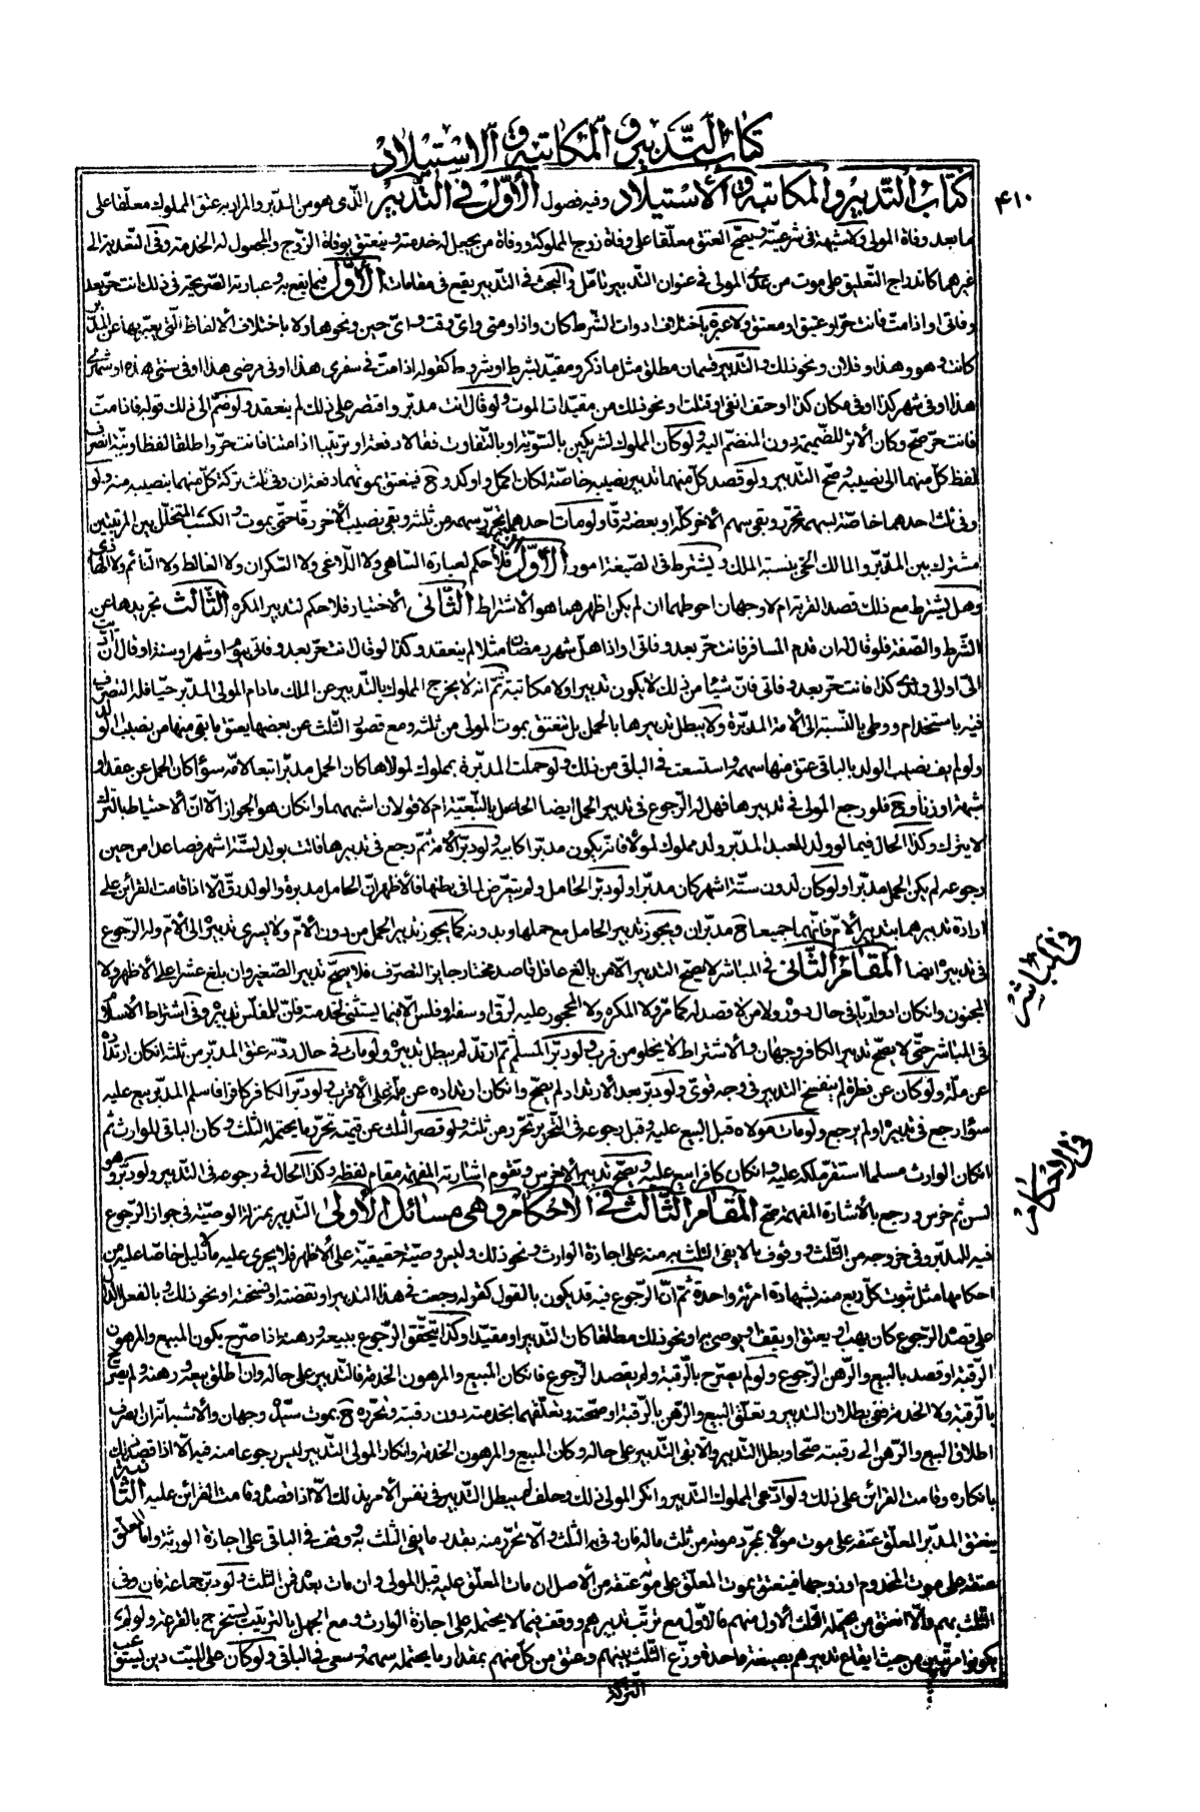 كتاب التدبير والمكاتبة والاستيلاد
۴۱۰
كتاب التدبير والمكاتبة والاستيلاد وفيه فصول الأول في التدبير الذى هو من الدبر والمراد به عتق المملوك معلقا على
ما بعد وفاة المولى ولا شبهة في شرعيته ويصح العتق معلقا على وفاة زوج المملوكة ووفاة من يجعل له خدمته وينعتق بوفاة الزوج والمجعول له الخدمة وفى التعدية الى
غيرهما كاندراج التعليق على موت من عدى المولى في عنوان التدبير تأمل والبحث في التدبير يقع في مقامات الأول فيما يقع به وعبارته الصريحة في ذلك انت حر بعد
وفاتى او اذا مت فانت حر او عتيق او معتق ولا عبرة باختلاف ادوات الشرط كان واذا ومتى واى وقت واى حين ونحوها ولا باختلاف الألفاظ التى يعبر بها عن المدبر
كانت وهو وهذا وفلان ونحو ذلك والتدبير قسمان مطلق مثل ما ذكر ومقيد بشرط او شروط كقوله اذا مت في سفرى هذا او في مرضى هذا او في سنتى هذه او شهرى
هذا او في شهر كذا او في مكان كذا او حتف انفى او قتلت ونحو ذلك من مقيدات الموت ولو قال انت مدبر واقتصر على ذلك لم ينعقد ولو ضم الى ذلك قوله فاذا مت
فانت حر صح وكان الأثر للضميمة دون المنضم اليه ولو كان المملوك لشريكين بالتسوية او بالتفاوت فقالا دفعة او ترتيبا اذا متنا فانت حر واطلقا لفظا ونية انصرف
لفظ كل منهما الى نصيبه وصح التدبير ولو قصد كل منهما تدبير نصيبه خاصة لكان اكمل واوكد وح فينعتق بموتهما دفعة ان وفى ثلث تركة كل منهما بنصيبه منه ولو
وفى ثلث احدهما خاصة بسهمه تحرر وبقى سهم الأخر كله او بعضه رقا ولو مات احدهما تحرر سهمه من ثلثه وبقى نصيب الأخر رقا حتى يموت والكسب المتخلل بين المرتبتين
مشترك بين المدبر والمالك الحى بنسبة الملك ويشترط في الصيغة امور الأول فلا حكم لعبارة الساهى ولا اللاغى ولا السكران ولا الغالط ولا النائم ولا
وهل يشترط مع ذلك قصد القربة ام لا وجهان احوطهما ان لم يكن اظهرهما هو الاشتراط الثانى الاختيار فلا حكم لتدبير المكره الثالث تجريدها عن
الشرط والصفة فلو قال ان قدم المسافر فانت حر بعد وفاتى او اذا هل شهر رمضان مثلا لم ينعقد وكذا لو قال انت حر بعد وفاتى بيوم او شهر او سنة او قال ان
الى او الى ولدى كذا فانت حر بعد وفاتى فان شيئا من ذلك لا يكون تدبيرا ولا مكاتبة ثم انه لا يخرج المملوك بالتدبير عن الملك ما دام المولى المدبر حيا فله التصرف
فيه باستخدام ووطى بالنسبة الى الأمة المدبرة ولا يبطل تدبيرها بالحمل بل تنعتق بموت المولى من ثلثه ومع قصور الثلث عن بعضها يعتق ما بقى منها من نصيب الولد
ولو لم يف نصيب الولد بالباقى عتق منها سهمه واستسعت في الباقى من ذلك ولو حملت المدبرة بمملوك لمولاها كان الحمل مدبرا تبعا لأمه سواء كان الحمل عن عقد او
شبهة او زنا وح فلو رجع المولى في تدبيرها فهل له الرجوع في تدبير الحمل ايضا الحاصل بالتبعية ام لا قولان اشبههما وان كان هو الجواز الا ان الاحتياط بالترك
لا يترك وكذا الحال فيما لو ولد للعبد المدبر ولد مملوك لمولاه فانه يكون مدبرا كابيه ولو دبر الأمة ثم رجع في تدبيرها فاتت بولد لستة اشهر فصاعدا من حين
رجوعه لم يكن الحمل مدبرا ولو كان لدون ستة اشهر كان مدبرا ولو دبر الحامل ولم يتعرض لما في بطنها فالأظهر ان الحامل مدبرة والولد رق الا اذا قامت القرائن على
ارادة تدبيرهما بتدبير الأم فانهما جميعا ح مدبران ويجوز تدبير الحامل مع حملها وبدونه كما يجوز تدبير الحمل من دون الأم ولا يسرى تدبيره الى الأم وله الرجوع
في تدبيره ايضا المقام الثانى في المباشر لا يصح التدبير الا من بالغ عاقل قاصد مختار جايز التصرف فلا يصح تدبير الصغير وان بلغ عشرا على الأظهر ولا
المجنون وان كان ادواريا في حال دوره ولا من لا قصد له كما مر ولا المكره ولا المحجور عليه لرق او سفه او فلس الا فيما يستثنى لخدمته فان للمفلس تدبيره وفى اشتراط الأسلام
في المباشر حتى لا يصح تدبير الكافر وجهان والاشتراط لا يخلو من قرب ولو دبر المسلم ثم ارتد لم يبطل تدبيره ولو مات في حال ردته عتق المدبر من ثلثه ان كان ارتداده
عن ملة ولو كان عن فطرة لم ينفسخ التدبير في وجه قوى ولو دبر بعد الارتداد لم يصح وان كان ارتداده عن ملة على الأقرب ولو دبر الكافر كافرا فاسلم المدبر بيع عليه
سواء رجع في تدبيره او لم يرجع ولو مات مولاه قبل البيع عليه وقبل رجوعه في التحرير تحرر من ثلثه ولو قصر الثلث عن قيمته تحرر ما يحتمله الثلث وكان الباقى للوارث ثم
ان كان الوارث مسلما استقر ملكه عليه وان كان كافرا بيع عليه ويصح تدبير الأخرس وتقوم اشارته المفهمة مقام لفظه وكذا الحال في رجوعه في التدبير ولو دبر وهو
لسن ثم خرس ورجع بالأشارة المفهمة صح المقام الثالث في الأحكام وهى مسائل الأولى التدبير بمنزلة الوصية في جواز الرجوع
فيه للمدبر وفى خروجه من الثلث ووقوف ما لا يفى الثلث به منه على اجازة الوارث ونحو ذلك وليس وصية حقيقية على الأظهر فلا يجرى عليه ما دل دليل خاصا عليه من
احكامها مثل ثبوت كل ربع منه بشهادة امرئة واحدة ثم ان الرجوع فيه قد يكون بالقول كقوله رجعت في هذا التدبير او نقضته او فسخته او نحو ذلك وبالفعل الدال
على قصد الرجوع كان يهب او يعتق او يقف او يوصى به او نحو ذلك مطلقا كان التدبير او مقيدا وكذا يتحقق الرجوع ببيعه ورهنه اذا صرح بكون المبيع والمرهون
الرقبة او قصد بالبيع والرهن الرجوع ولو لم يصرح بالرقبة ولم يقصد الرجوع فان كان المبيع والمرهون الخدمة فالتدبير على حاله وان اطلق بيعه ورهنه ولم يصرح
بالرقبة ولا الخدمة ففى بطلان التدبير وتعلق البيع والرهن بالرقبة او صحته وتعلقهما بخدمته دون رقبته وتحرره ح بموت سيده وجهان والأشبه انه ان انصرف
اطلاق البيع والرهن الى رقبته صحا وبطل التدبير والا بقى التدبير على حاله وكان المبيع والمرهون الخدمة وانكار المولى التدبير ليس رجوعا منه فيه الا اذا قصد ذلك
بانكاره وقامت القرائن على ذلك ولو ادعى المملوك التدبير وانكر المولى ذلك وحلف لم يبطل التدبير في نفس الأمر بذلك الا اذا قصده وقامت القرائن عليه الثانية
ينعتق المدبر المعلق عتقه على موت مولاه بمجرد موته من ثلث ماله فان وفى به الثلث والا تحرر منه بقدر ما يفى الثلث به ووقف في الباقى على اجازة الورثة واما المعلق
عتقه على موت المخدوم او زوجها فينعتق بموت المعلق على موته عتقه من الأصل ان مات المعلق عليه قبل المولى وان مات بعده فمن الثلث ولو دبر جماعة فان وفى
الثلث بهم والا انعتق من يحتمله الثلث الأول منهم فالأول مع ترتب تدبيرهم ووقف فيما لا يحتمله على اجازة الوارث ومع الجهل بالترتيب يستخرج بالقرعة ولو لم
يكونوا مرتبين من حيث ايقاع تدبيرهم بصيغة واحدة وزع الثلث بينهم وعتق من كل منهم بمقدار ما يحتمله سهمه وسعى في الباقى ولو كان على الميت دين يستوعب
التركة
في المباشر
في الاحكام